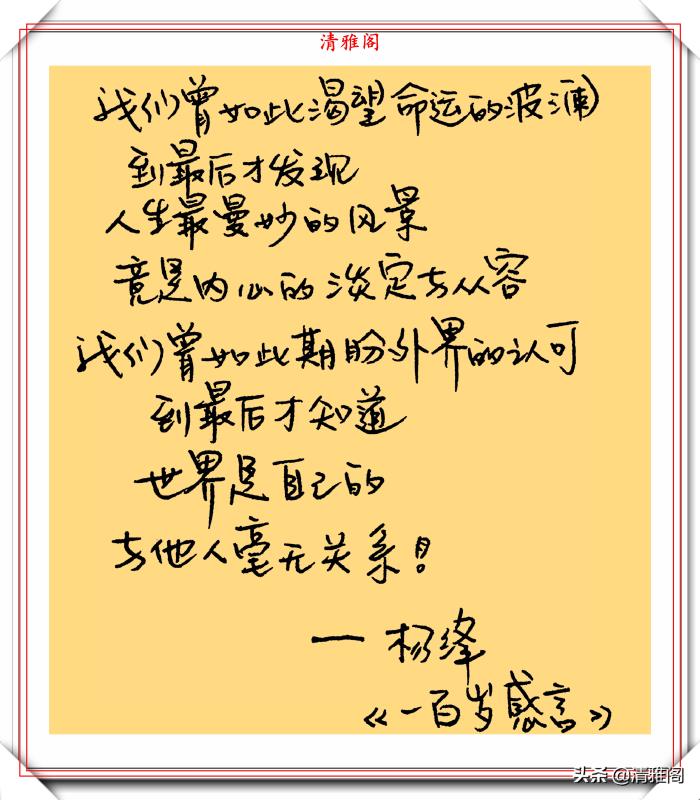 清雅阁
我们曾如此渴望命运的波澜
到最后才发现
人生最曼妙的风景
竟是内心的淡定与从容
我们曾如此期盼外界的认可
到最后才知道
世界是自己的
与他人毫无关系！
一杨绛
《一百岁感言》
头条 @清雅阁